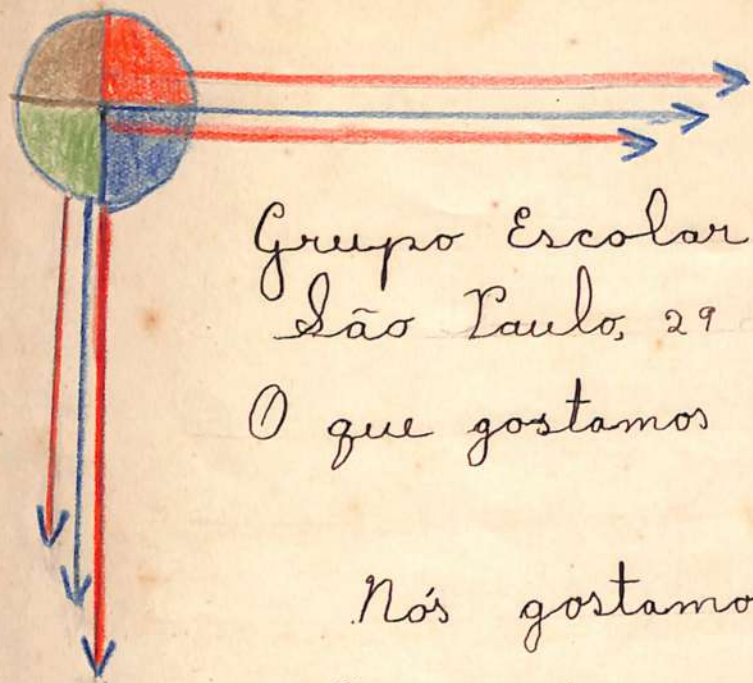 Grupo Escolar
São Paulo, 29
O que gostamos
Nós gostamo